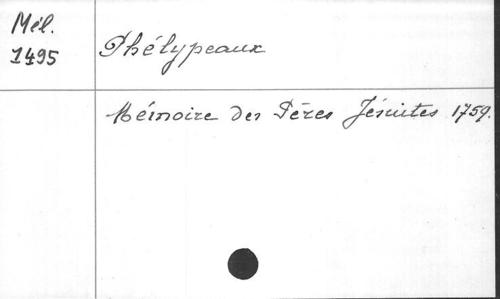 Mél.
1495
Phélypeaux
Mémoire des Pères Jésuites 1759.